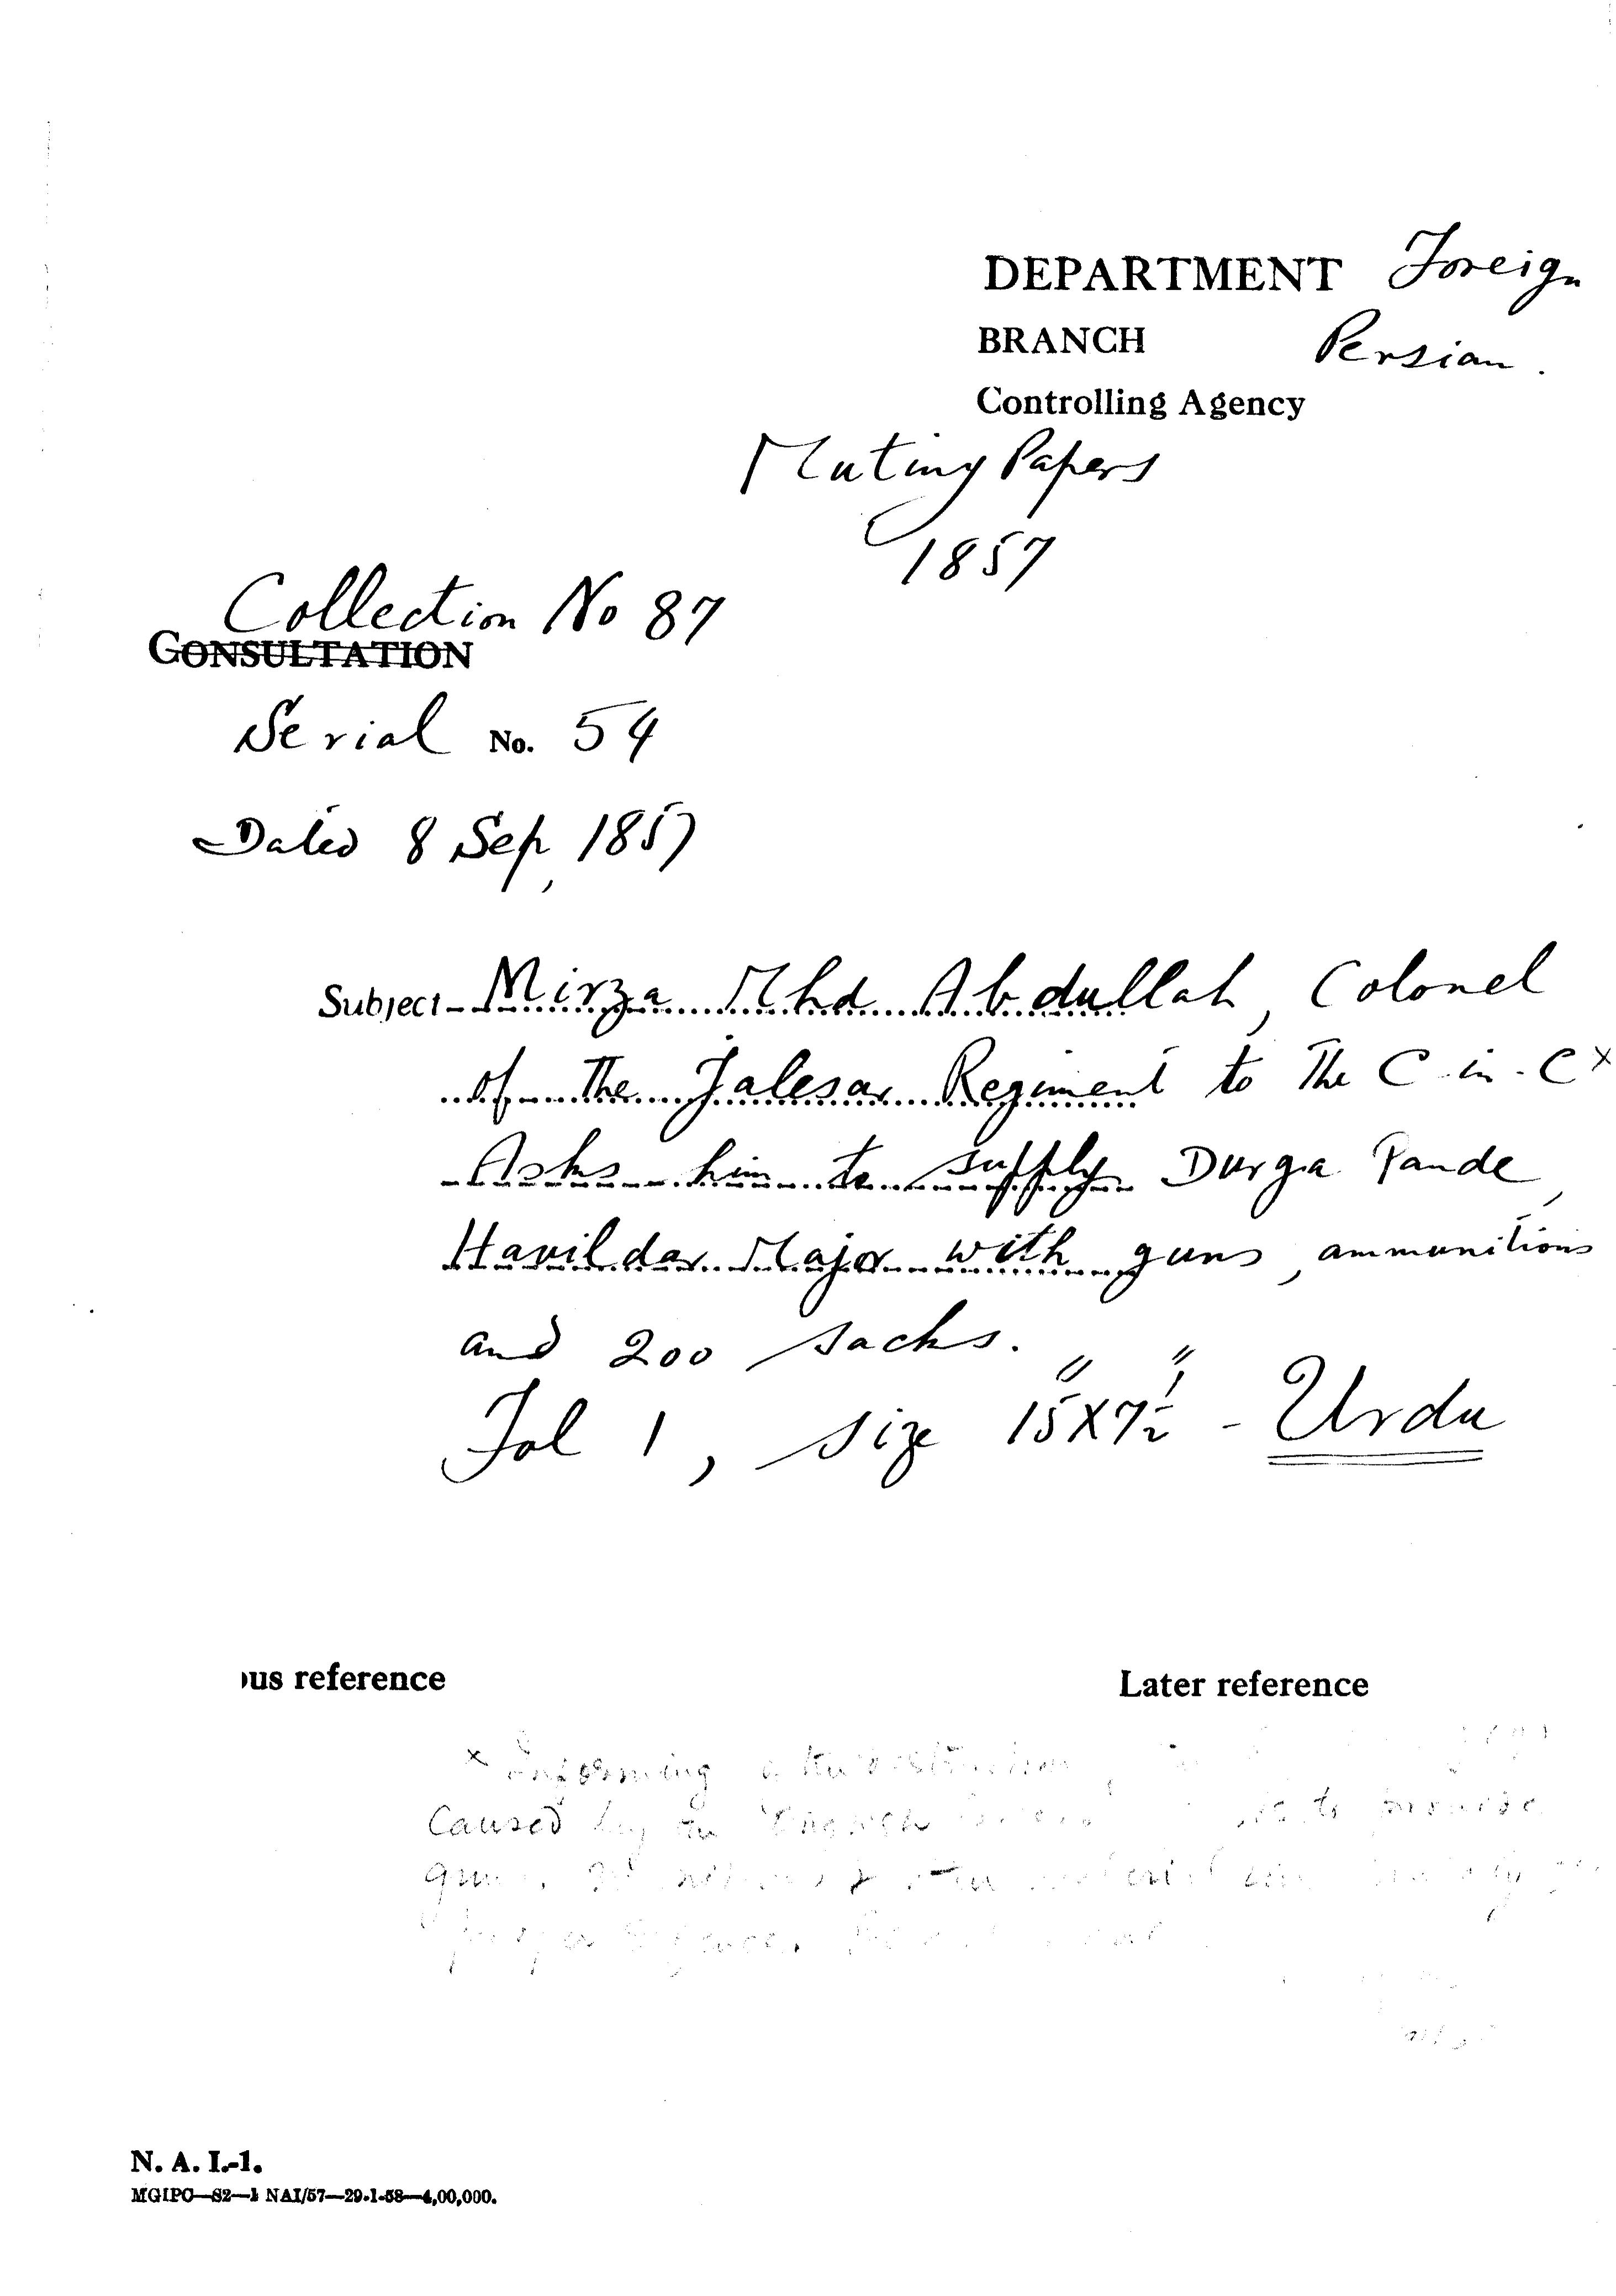 DEPARTMENT Foreign
BRANCH Persian.
Controlling Agency
Mutiny Papers
1857
Collection No 87
CONSULTATION
Serial No. 54
Dated 8 Sep, 1857
Subject - Mirza Mhd Abdullah, Colonel
of the Jalesar Regiment to The C-in-C x
Asks him to supply Durga Pande,
Havildar Major with guns, ammunitions
and 200 sacks.
Fol 1, size 15" x 7½" - Urdu
us reference Later reference
x Informing
Caused by to
N. A. I.-1.
MGIPC—S2—1 NAI/57—29-1-58—4,00,000.